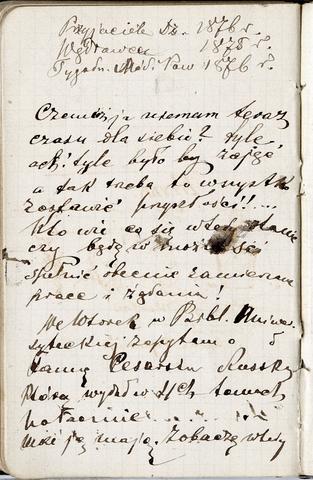 Przyjaciel Dz. 1876 r.
Wędrowca 1875 r.
Tygodn. Mód. Pow 1876 r.
Czemuż ja niemam teraz
czasu dla siebie? tyle,
ach! tyle było by zajęć
a tak trzeba to wszystko
zostawić przyszłości!!...
kto wie, co się wtedy stanie
czy będę w możności
spełnić obecnie zamierzone
prace i żądania!
We Wtorek w Bibl. Uniwer
syteckiej zapytam o
Cesarsin Russk
którą wydał w tomach
po łacinie.....
może ją mają. Zobaczę wtedy